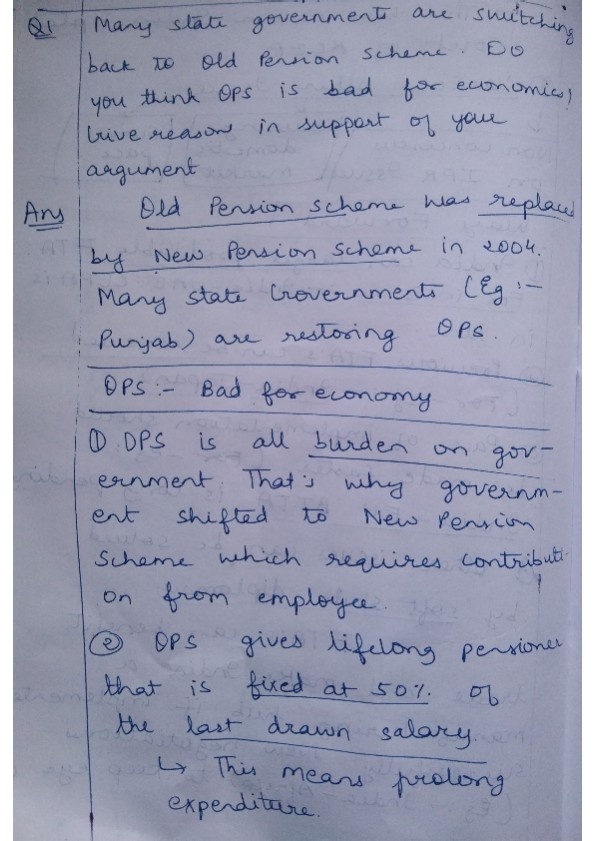 Q1 Many state governments are switching
back to Old Pension scheme. Do
you think OPS is bad for economics?
Give reason in support of your
argument
Ans Old Pension scheme was replaced
by New Pension scheme in 2004.
Many state Governments (Eg :-
Punjab) are restoring OPS.
OPS :- Bad for economy
① OPS is all burden on gov-
ernment. That's why governm-
ent shifted to New Pension
Scheme which requires contributi-
on from employee.
② OPS gives lifelong pensioner
that is fixed at 50% of
the last drawn salary
↳ This means prolong
expenditure.